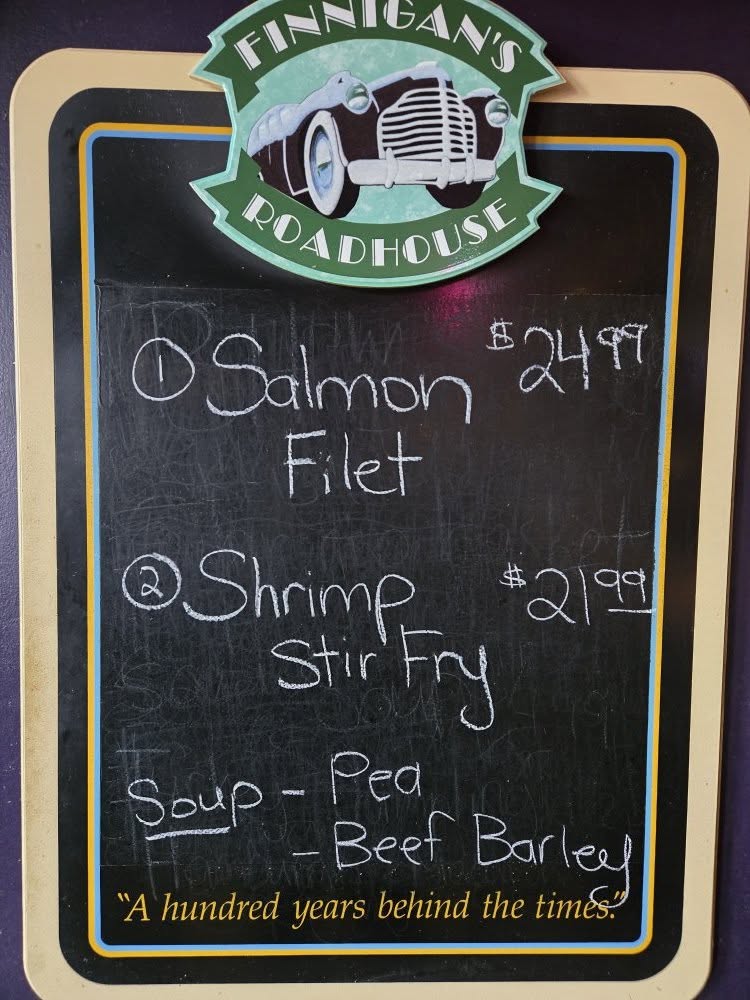 FINNIGAN'S
ROADHOUSE
① Salmon $24.99
Filet
② Shrimp $21.99
Stir Fry
Soup - Pea
- Beef Barley
"A hundred years behind the times."